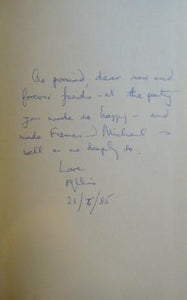 As promised, dear new and
forever friends - at the party
you made so happy - and
made Frances + Michael as
well as me deeply so.
Love
21/ /85